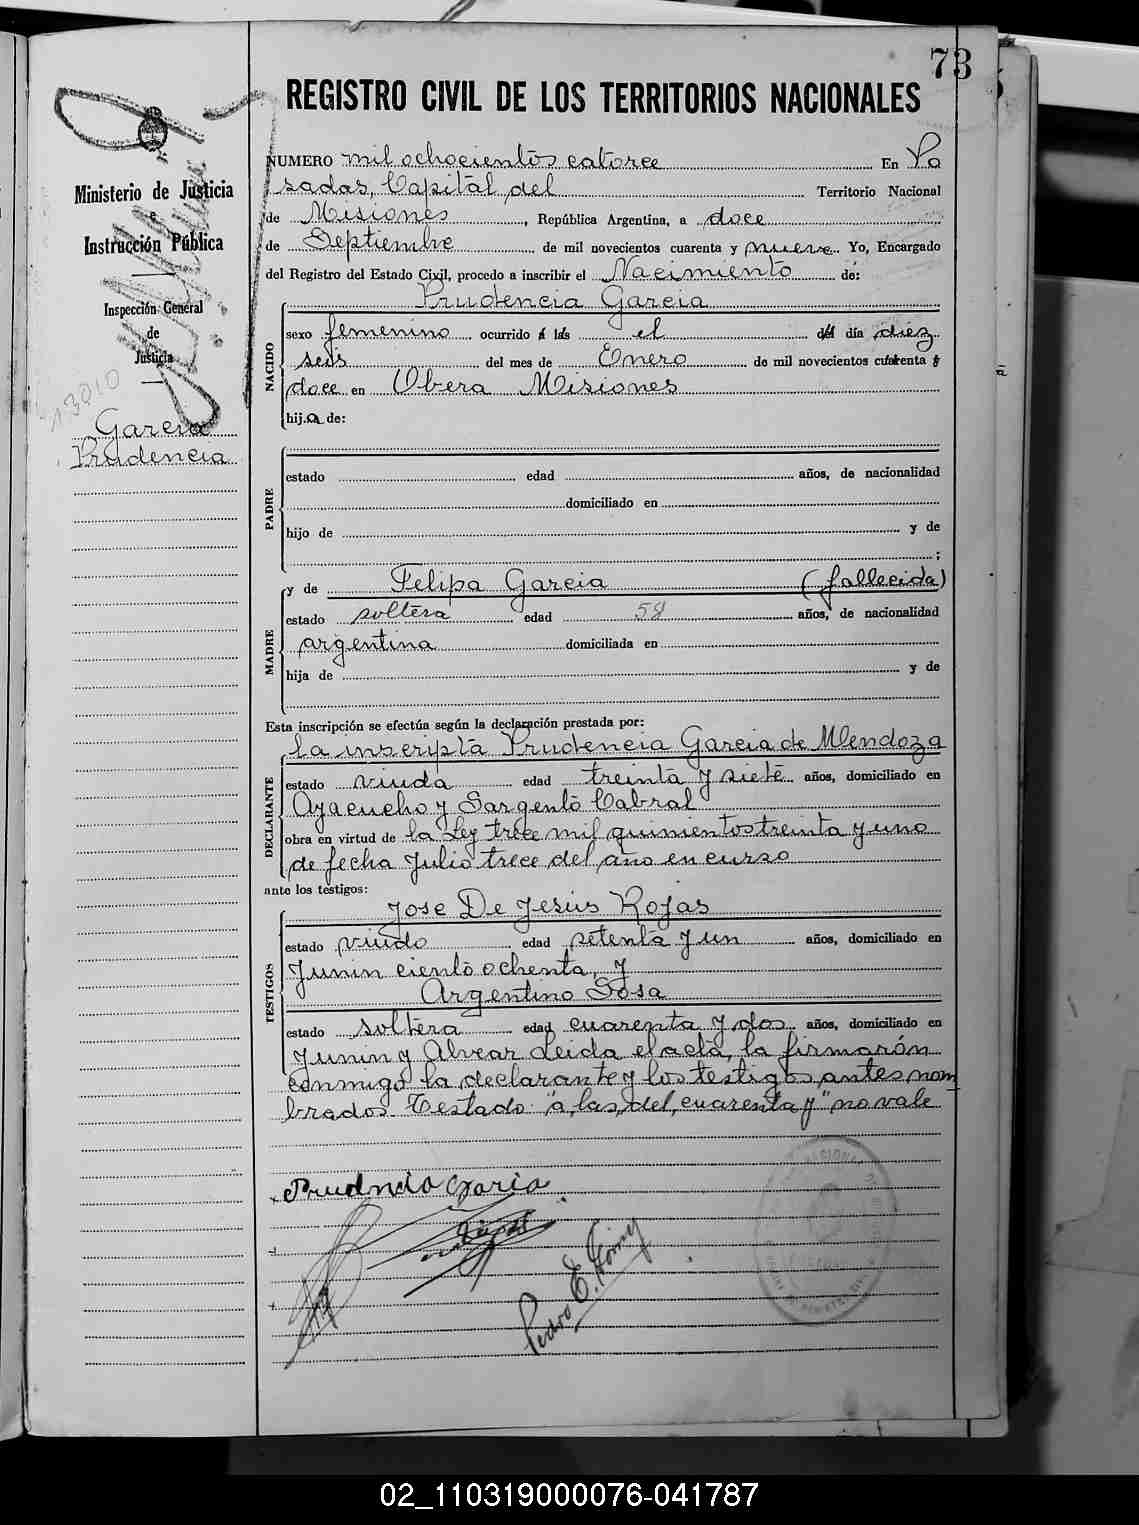 73
REGISTRO CIVIL DE LOS TERRITORIOS NACIONALES
NUMERO mil ochocientos catorce En Po
sadas, Capital del Territorio Nacional
de Misiones, República Argentina, a doce
de Septiembre de mil novecientos cuarenta y nueve. Yo, Encargado
del Registro del Estado Civil, procedo a inscribir el Nacimiento de:
Prudencia Garcia
NACIDO
sexo femenino ocurrido a las el del día diez
seis del mes de Enero de mil novecientos cuarenta y
doce en Obera Misiones
hija de:
PADRE
estado edad años, de nacionalidad
domiciliado en
hijo de y de
;
MADRE
y de Felipa Garcia (fallecida)
estado soltera edad 58 años, de nacionalidad
argentina domiciliada en
hija de y de
Esta inscripción se efectúa según la declaración prestada por:
la inscripta Prudencia Garcia de Mendoza
DECLARANTE
estado viuda edad treinta y siete años, domiciliado en
Ayacucho y Sargento Cabral
obra en virtud de la Ley trece mil quinientos treinta y uno
de fecha Julio trece del año en curso
ante los testigos:
TESTIGOS
Jose De Jesús Rojas
estado viudo edad setenta y un años, domiciliado en
Junin ciento ochenta, y
Argentino Sosa
estado soltera edad cuarenta y dos años, domiciliado en
Junin y Alvear Leida el acta, la firmarón
conmigo la declarante y los testigos antes nom
brados. Testado "a, las, del, cuarenta y" no vale
Prudndia Garia
Pedro E.
Ministerio de Justicia
e
Instrucción Pública
Inspección General
de
Justicia
13010
Garcia
Prudencia
02_110319000076-041787